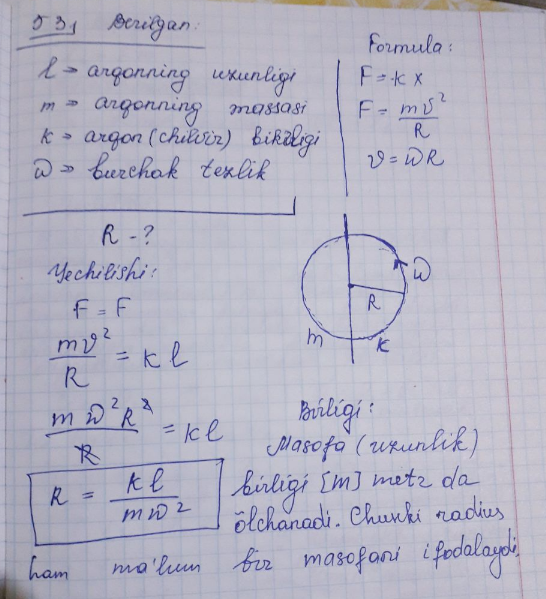 531 Berilgan:
l => arqonning uzunligi
m => arqonning massasi
k => arqon (chilvir) bikrligi
ω => burchak tezlik
R - ?
Formula:
F = kx
F = mϑ²/R
ϑ = ωR
Yechilishi:
F = F
mϑ²/R = kl
mω²R²/R = kl
R = kl/mω²
ω
R
m
k
Birligi:
Masofa (uzunlik)
birligi [m] metr da
o'lchanadi. Chunki radius
ham ma'lum bir masofani ifodalaydi.